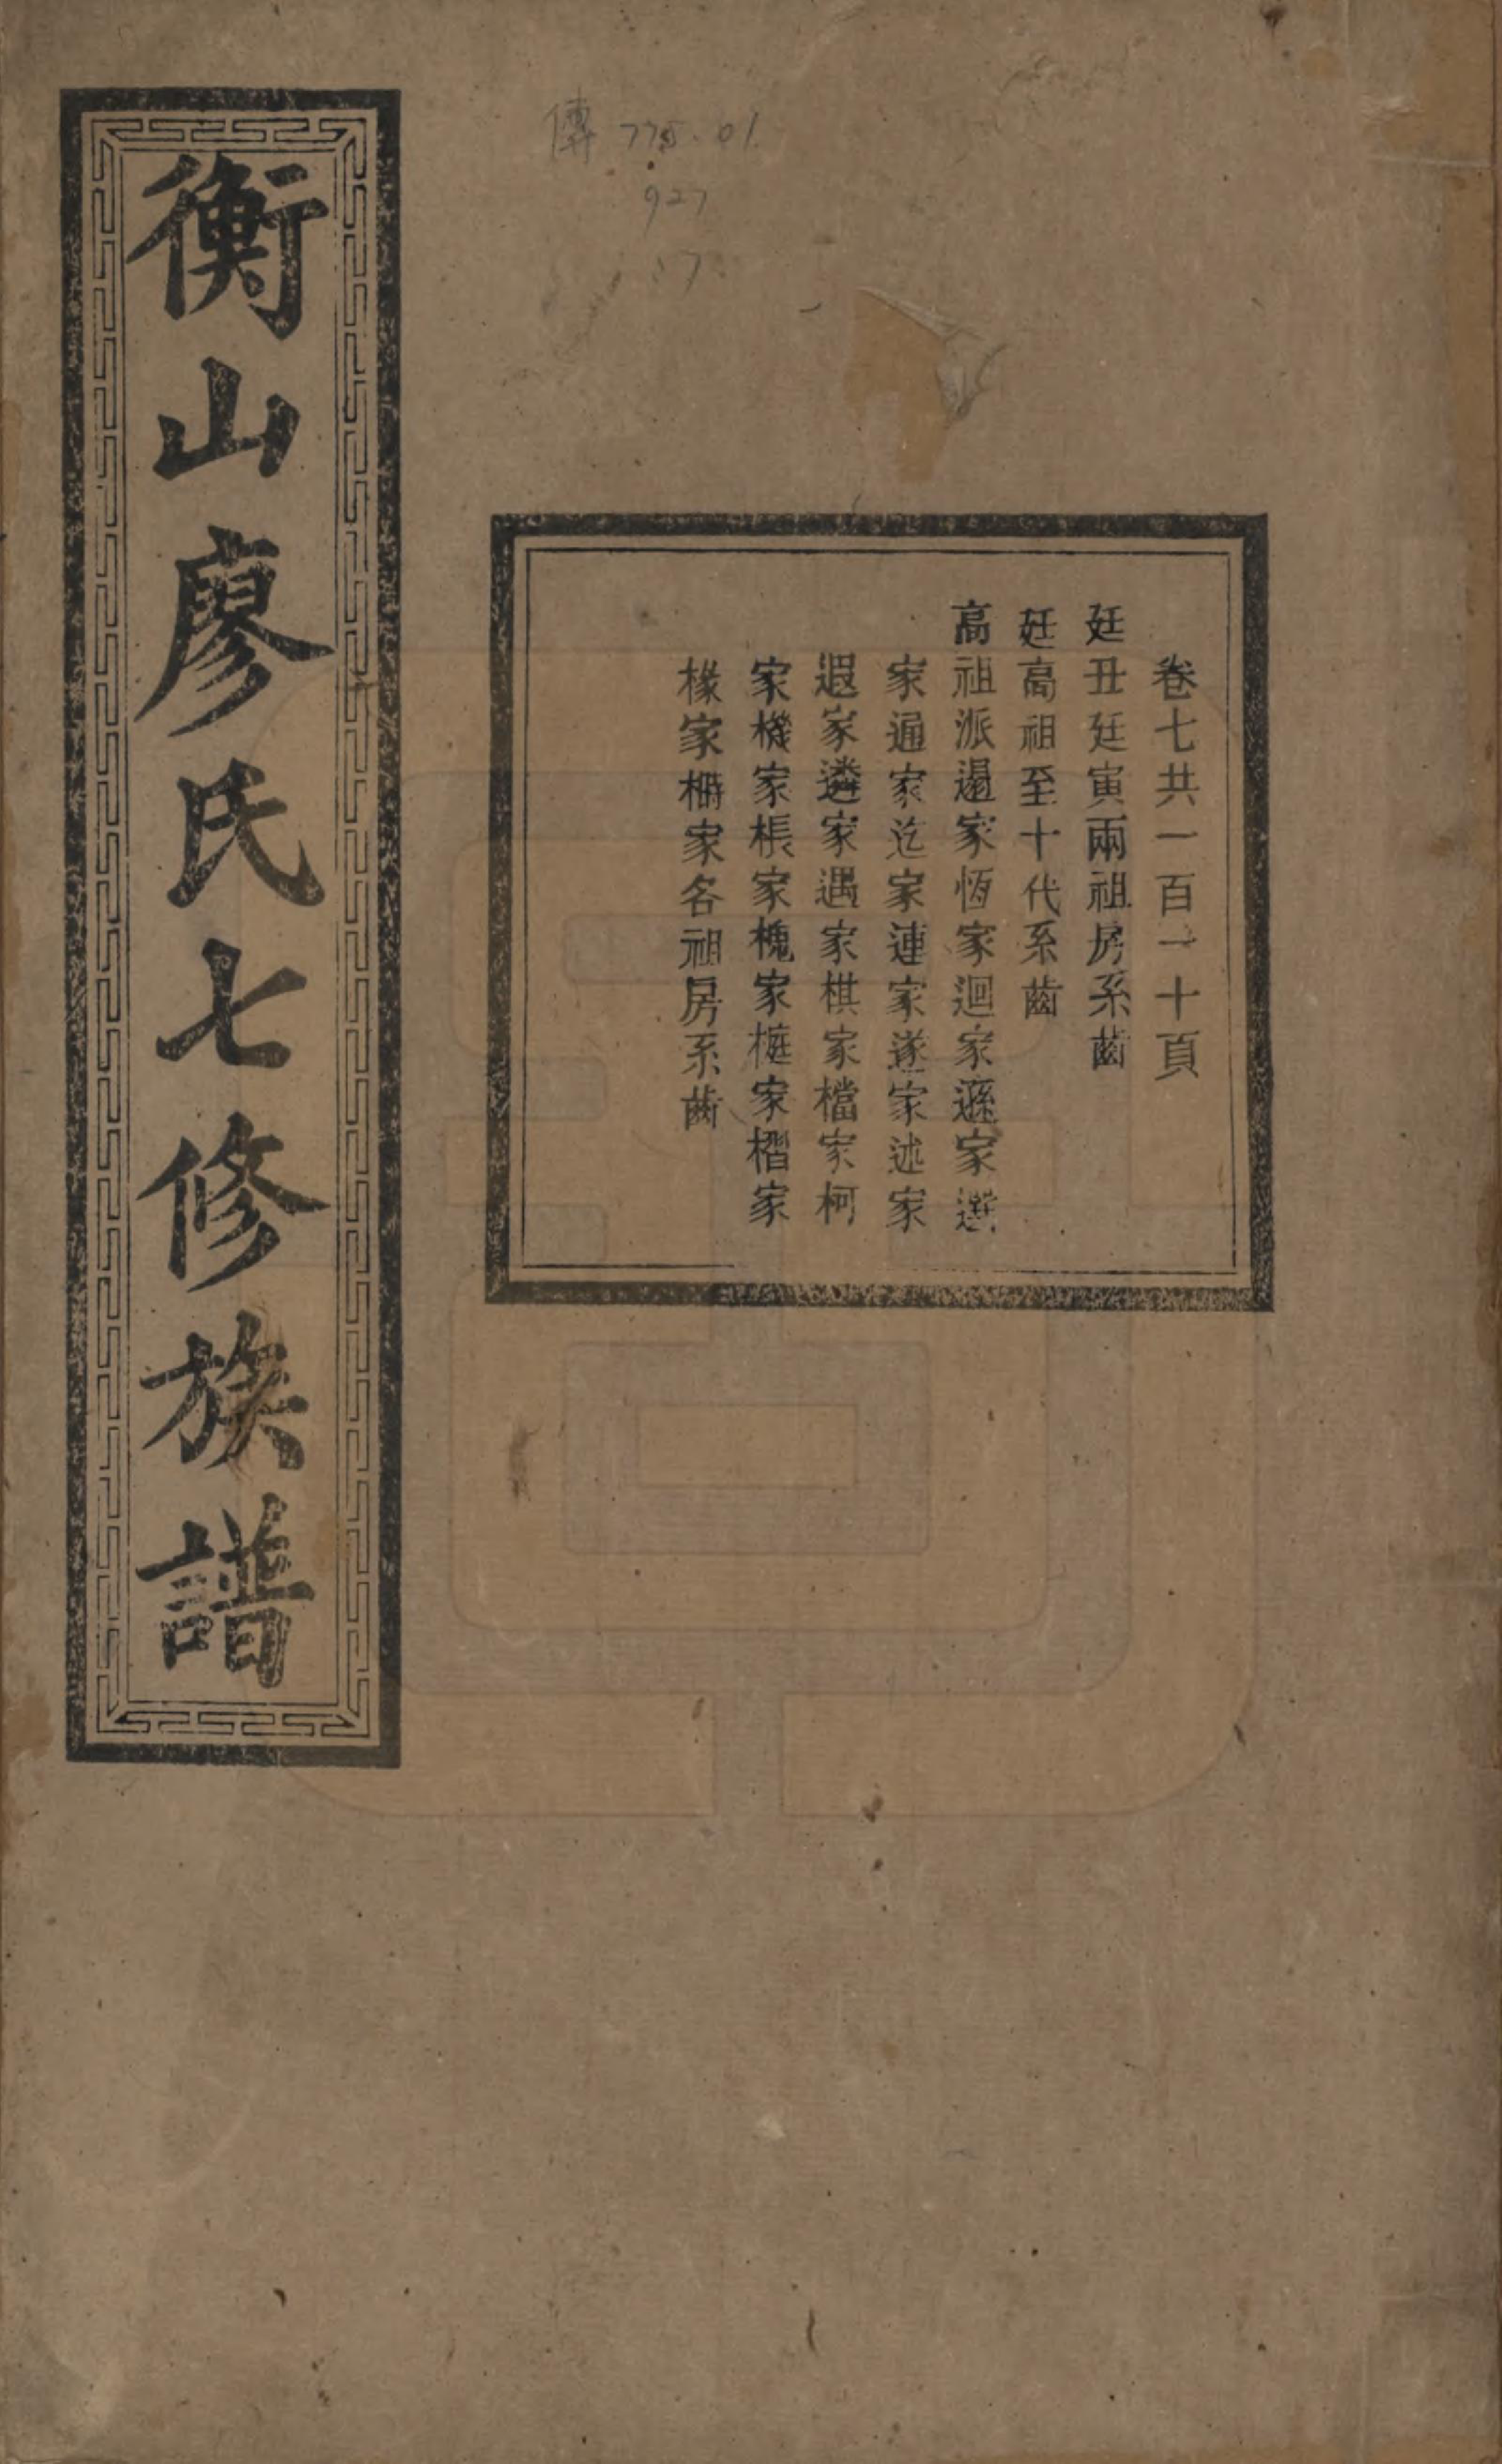 衡山廖氏七修族譜
傳 775.01
927
:7
卷七共一百一十頁
廷丑廷寅兩祖房系齒
廷高祖至十代系齒
高祖派逷家恆家迴家遜家選
家通家迄家連家遂家述家
遐家遴家遇家棋家檔家柯
家機家棖家槐家榳家槢家
椽家栅家各祖房系齒